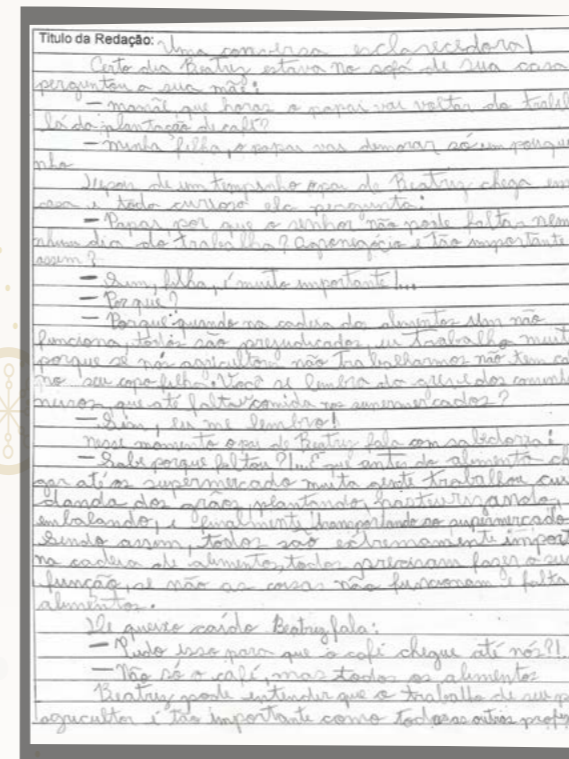 Título da Redação: Uma conversa esclarecedora!
Certo dia Beatriz estava no sofá de sua casa
perguntou a sua mãe:
— mamãe que horas o papai vai voltar do trabal
lá da plantação de café?
— minha filha, o papai vai demorar só um pouqui
nho
Depois de um tempinho o pai de Beatriz chega em
casa e toda curiosa ela pergunta:
— Papai por que o senhor não pode faltar nem
nhum dia do trabalho? agronegócio é tão importante
assim?
— Sim, filha, é muito importante!...
— Por que?
— Porque quando na cadeia dos alimentos um não
funciona, todos são prejudicados, eu trabalho muito
porque se nós agricultores não trabalharmos não tem ca
no seu copo filha. Você se lembra da greve dos caminho
neiros, que até faltou comida nos supermercados?
— Sim, eu me lembro!
nesse momento o pai de Beatriz fala com sabedoria:
— Sabe porque faltou?!... É que antes do alimento che
gar até os supermercado muita gente trabalhou cui
dando dos grãos, plantando, pasteurizando,
embalando, e finalmente transportando ao supermercado
Sendo assim, todos são extremamente import
na cadeia de alimentos, todos precisam fazer a sua
função, se não as coisas não funcionam e falta
alimentos.
De queixo caído Beatriz fala:
— Tudo isso para que o café chegue até nós?!.
— Não só o café, mas todos os alimentos
Beatriz pode entender que o trabalho de seu p
agricultor é tão importante como todas as outras profis